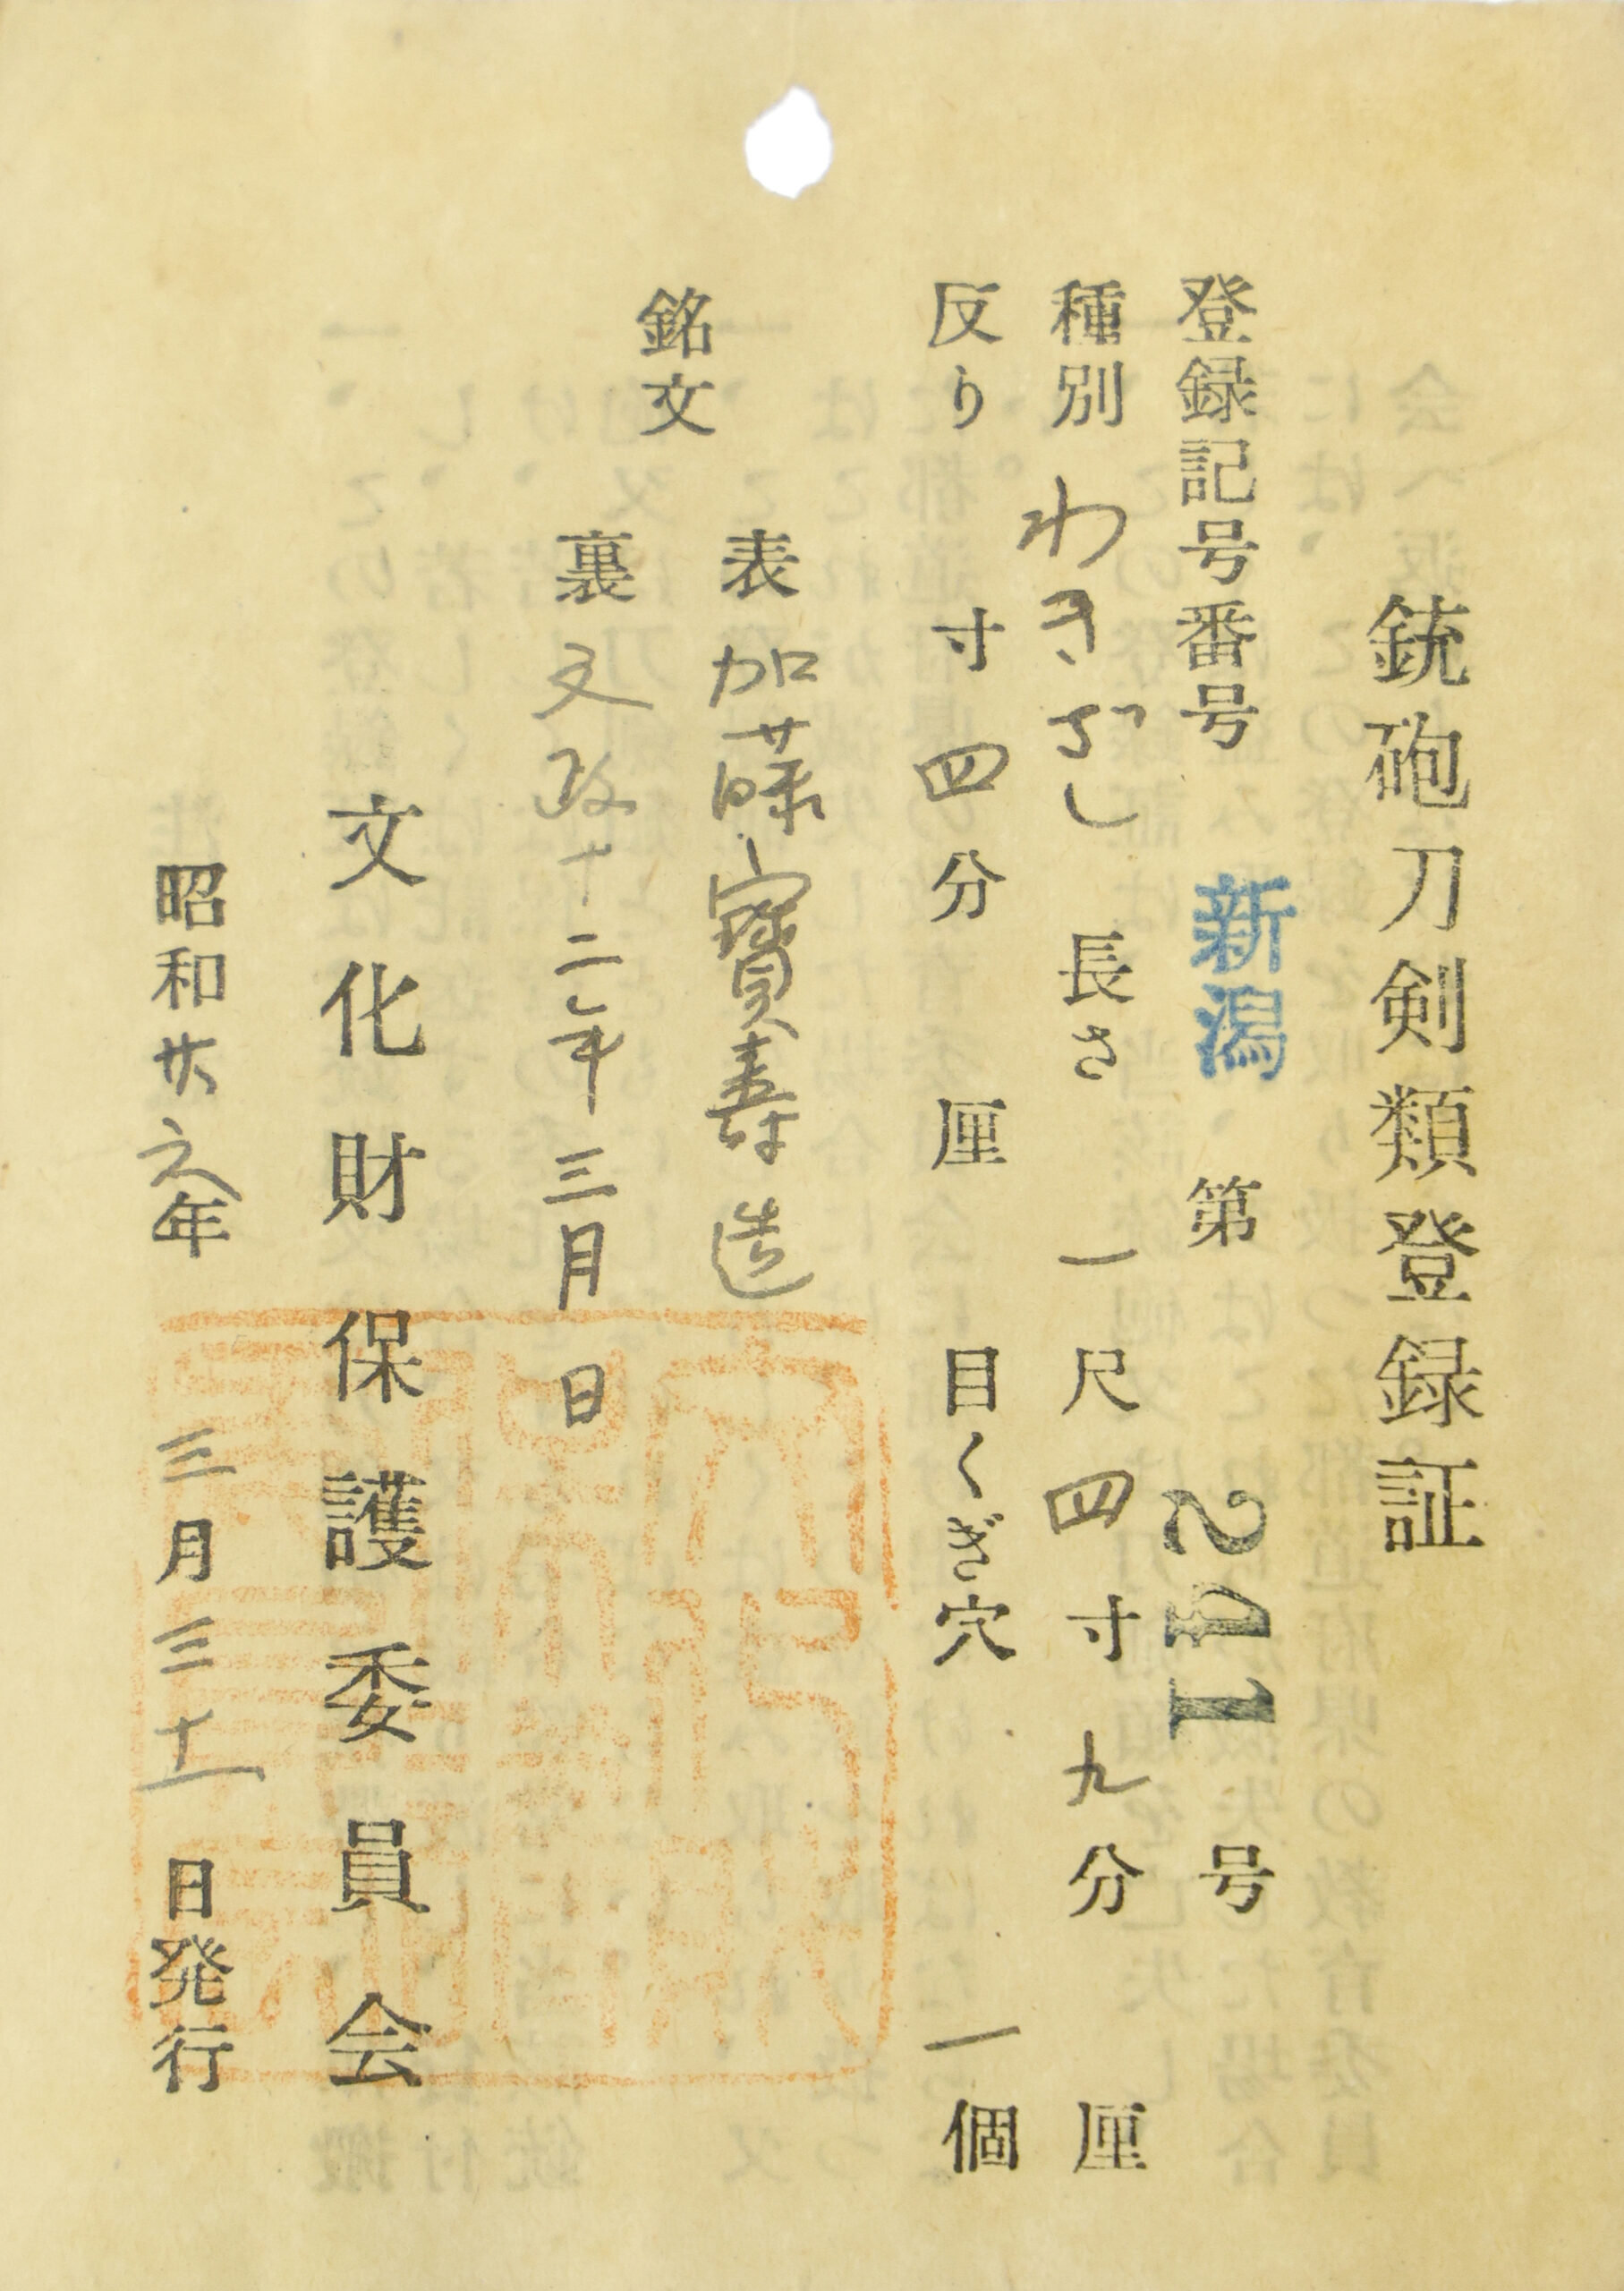 銃砲刀剣類登録証
登録記号番号 新潟 第 241 号
種別 わきざし 長さ 一尺四寸九分 厘
反り 寸四分 厘 目くぎ穴 一個
銘文
表 加藤寳寿造
裏 文政十二年三月日
文化財保護委員会
昭和廿六年三月三十一日発行